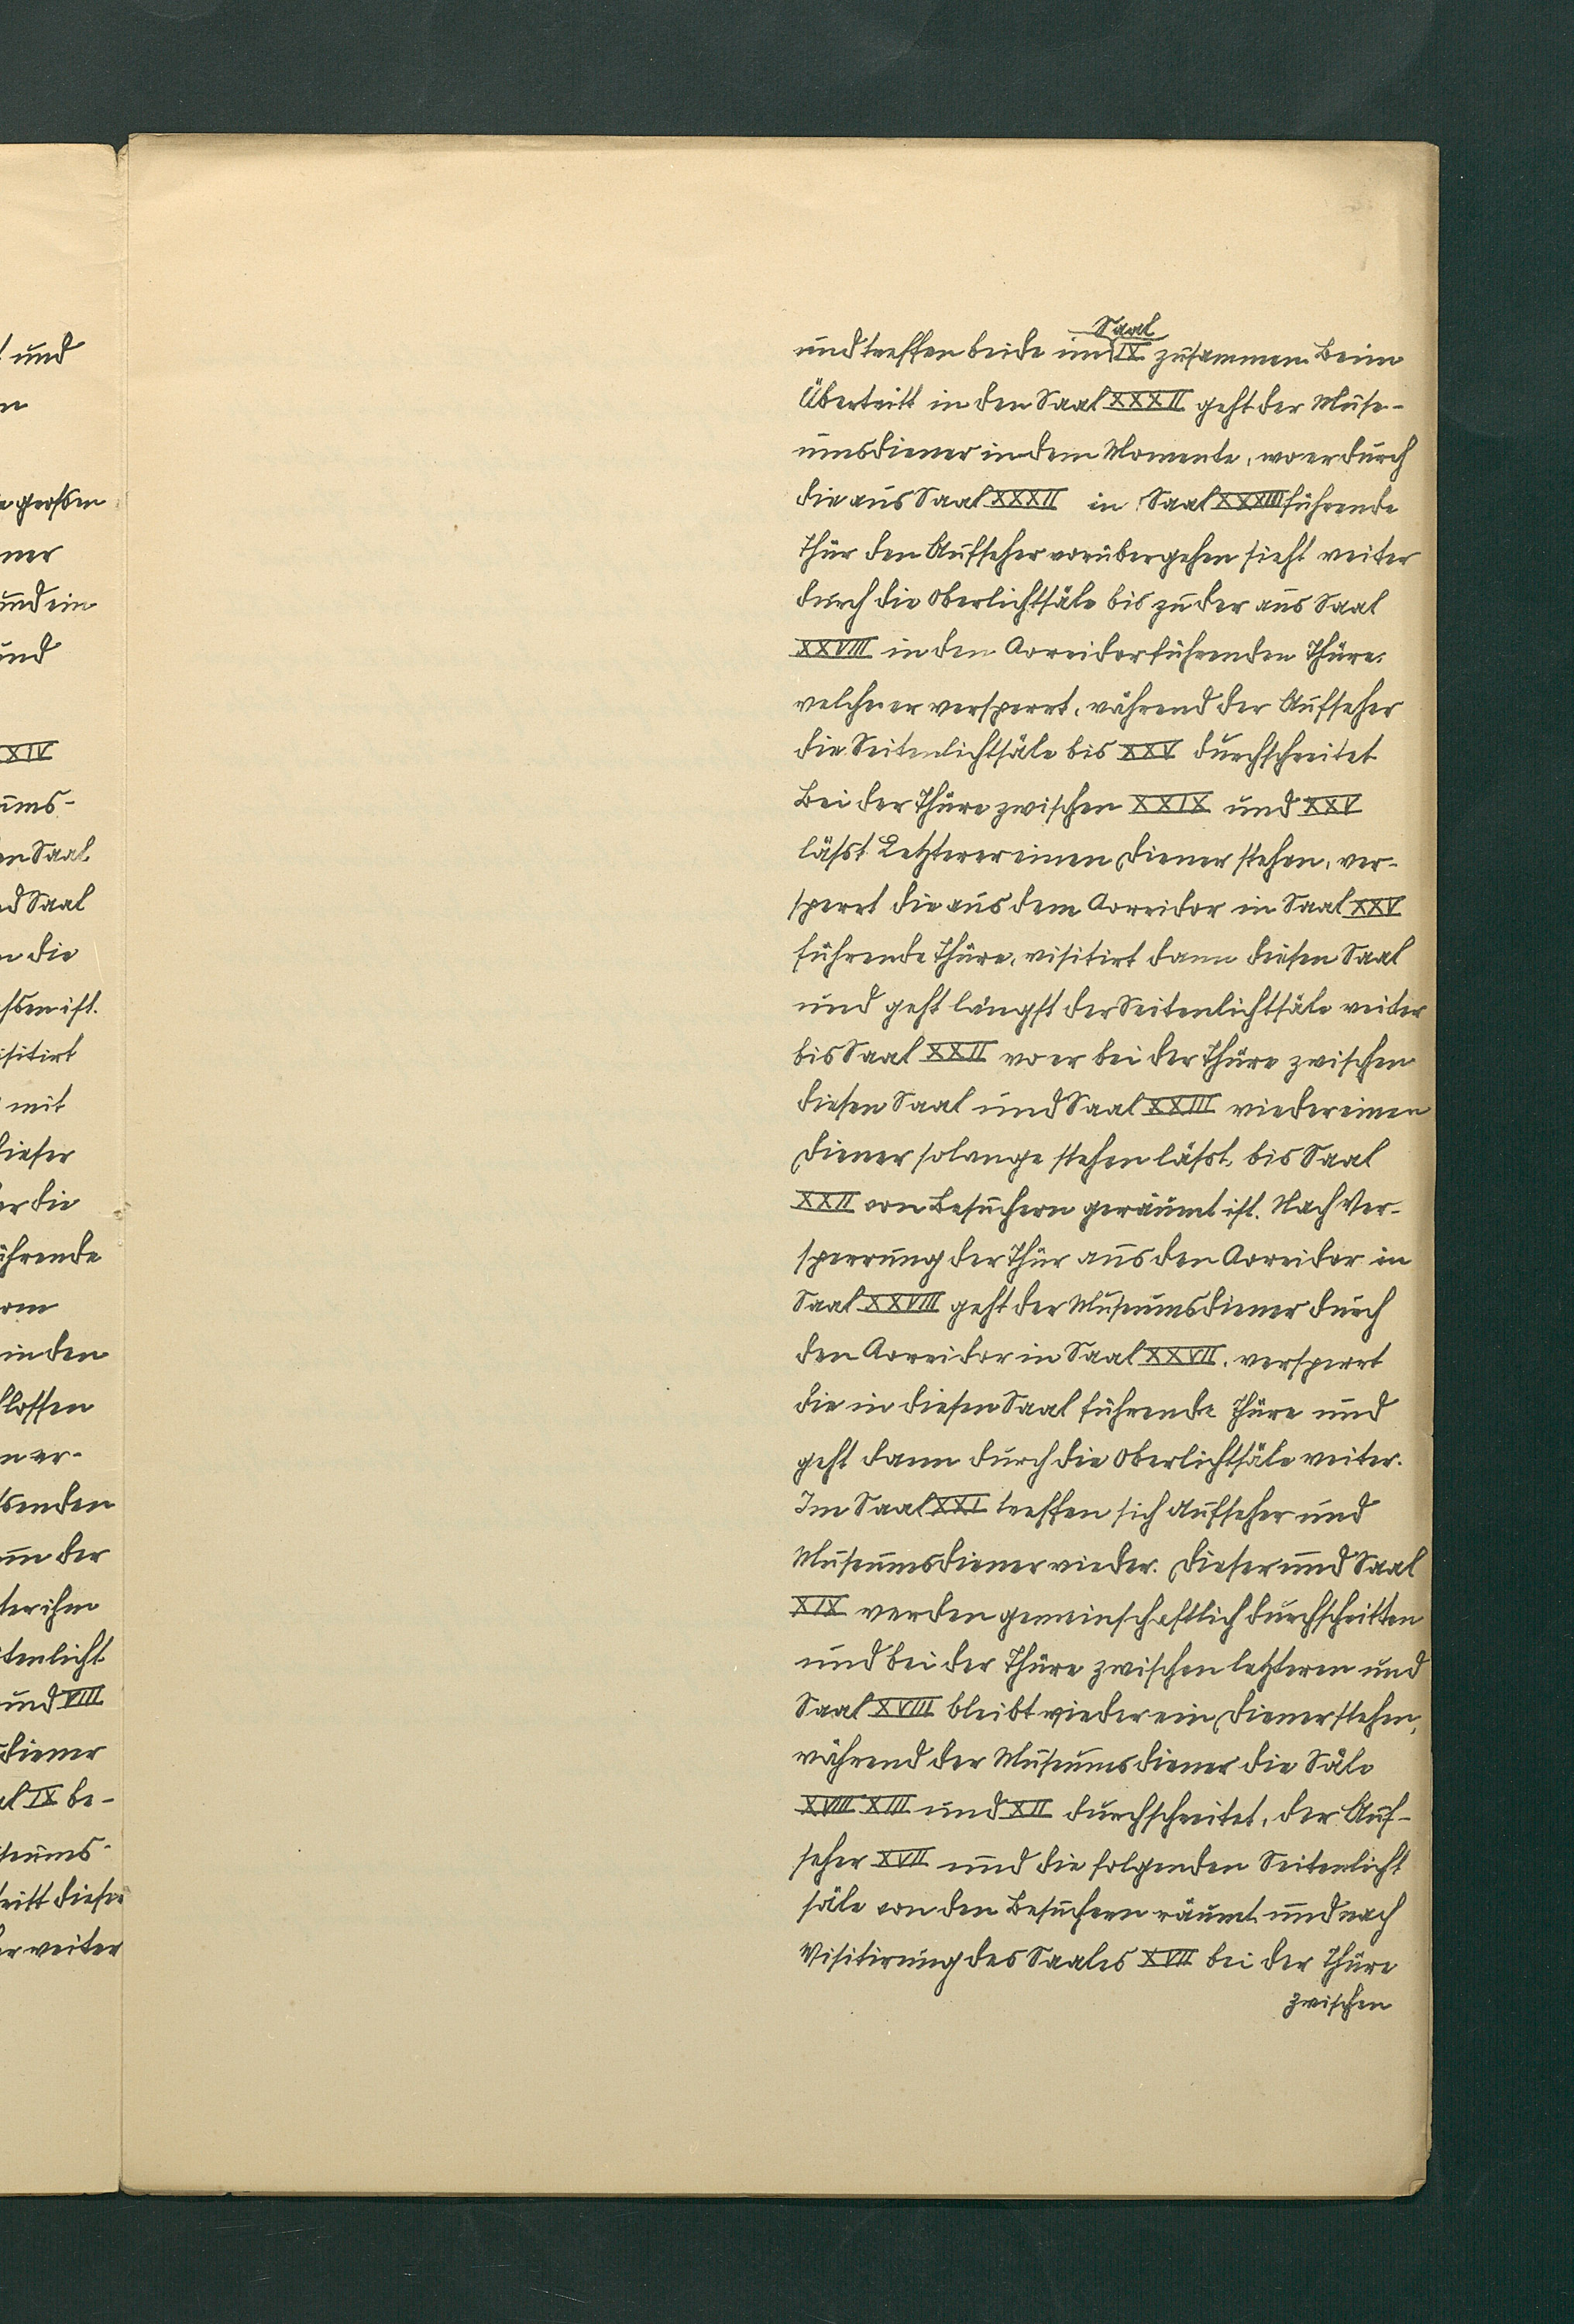 t und
n
e großen
ner
und ein
und
XXIV
ums-
en Saal
nd Saal
n die
ssen ist.
isitirt
mit
dieser
er die
ührende
om
in den
lossen
n er-
senden
um der
ter ihm
itenlicht
und VIII
diener
al IX be-
seums-
tritt dieser
er weiter
und treffen beide im Saal IX zusammen. Beim
Übertritt in den Saal XXXII geht der Muse-
umsdiener in dem Momente, wo er durch
die aus Saal XXXII in Saal XXXIII führende
Thür den Aufseher vorübergehen sieht weiter
durch die Oberlichtsäle bis zu der aus Saal
XXVIII in den Corridor führenden Thüre,
welche er versperrt, während der Aufseher
die Seitenlichtsäle bis XXV durchschreitet
Bei der Thüre zwischen XXIX und XXV
läßt Letzterer einen Diener stehen, ver-
sperrt die aus dem Corridor in Saal XXV
führende Thüre, visitirt dann diesen Saal
und geht längst der Seitenlichtsäle weiter
bis Saal XXII wo er bei der Thüre zwischen
diesen Saal und Saal XXIII wieder einen
Diener solange stehen läßt, bis Saal
XXII von Besuchern geräumt ist. Nach Ver-
sperrung der Thür aus den Corridor in
Saal XXVIII geht der Museumsdiener durch
den Corridor in Saal XXVII, versperrt
die in diesen Saal führende Thüre und
geht dann durch die Oberlichtsäle weiter.
Im Saal XXI treffen sich Aufseher und
Museumsdiener wieder. Dieser und Saal
XIX werden gemeinschaftlich durchschritten
und bei der Thüre zwischen letzteren und
Saal XVIII bleibt wieder ein Diener stehen,
während der Museumsdiener die Säle
XVIII XIII und XII durchschreitet, der Auf-
seher XVII und die folgenden Seitenlicht
säle von den Besuchern räumt und nach
Visitirung des Saales XVII bei der Thüre
zwischen